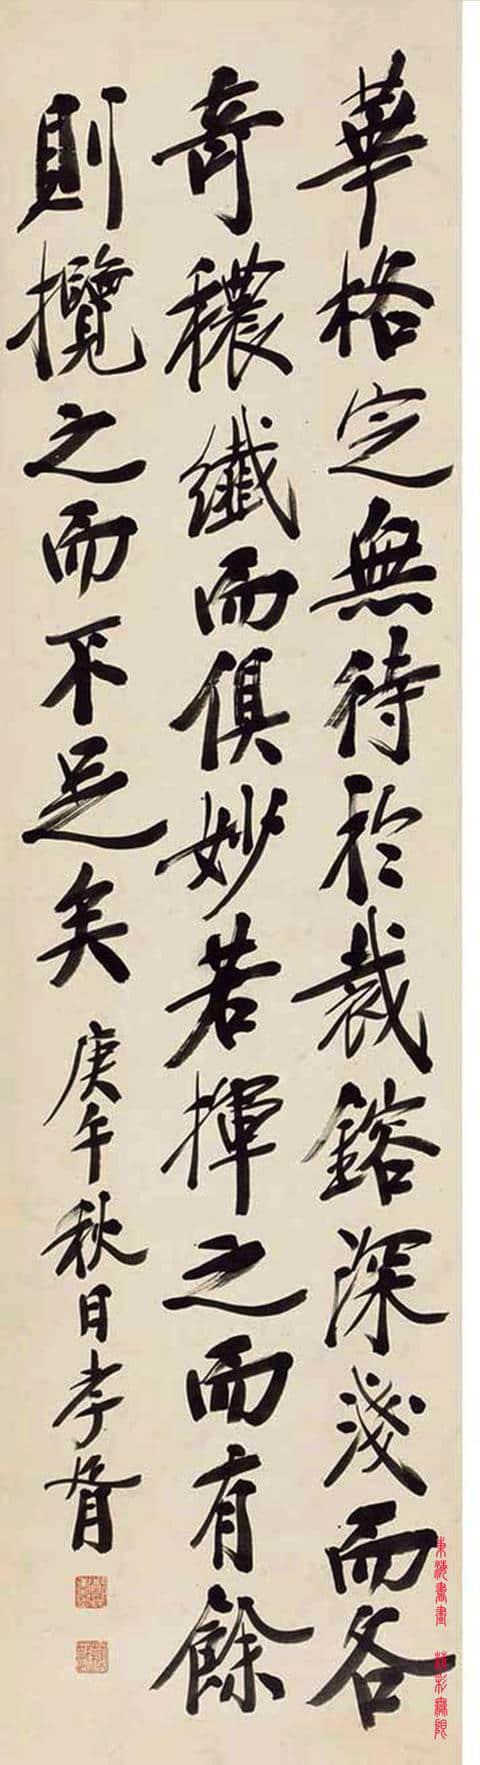 華格定無待於裁鎔深淺而各
奇穠纖而俱妙若揮之而有餘
則攬之而不足矣
庚午秋日孝胥
東海書畫